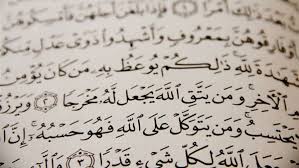 ذَٰلِكَ أَمْرًا ١ فَإِذَا بَلَغْنَ أَجَلَهُنَّ
أَوْ فَارِقُوهُنَّ بِمَعْرُوفٍ وَأَشْهِدُوا۟ ذَوَىْ عَدْلٍ مِّنكُمْ
ٱلشَّهَٰدَةَ لِلَّهِ ذَٰلِكُمْ يُوعَظُ بِهِۦ مَن كَانَ يُؤْمِنُ
ٱلْءَاخِرِ وَمَن يَتَّقِ ٱللَّهَ يَجْعَل لَّهُۥ مَخْرَجًا ٢ وَيَرْزُقْهُ
يَحْتَسِبُ وَمَن يَتَوَكَّلْ عَلَى ٱللَّهِ فَهُوَ حَسْبُهُۥٓ إِنَّ ٱللَّهَ
ٱللَّهُ لِكُلِّ شَىْءٍ قَدْرًا ٣